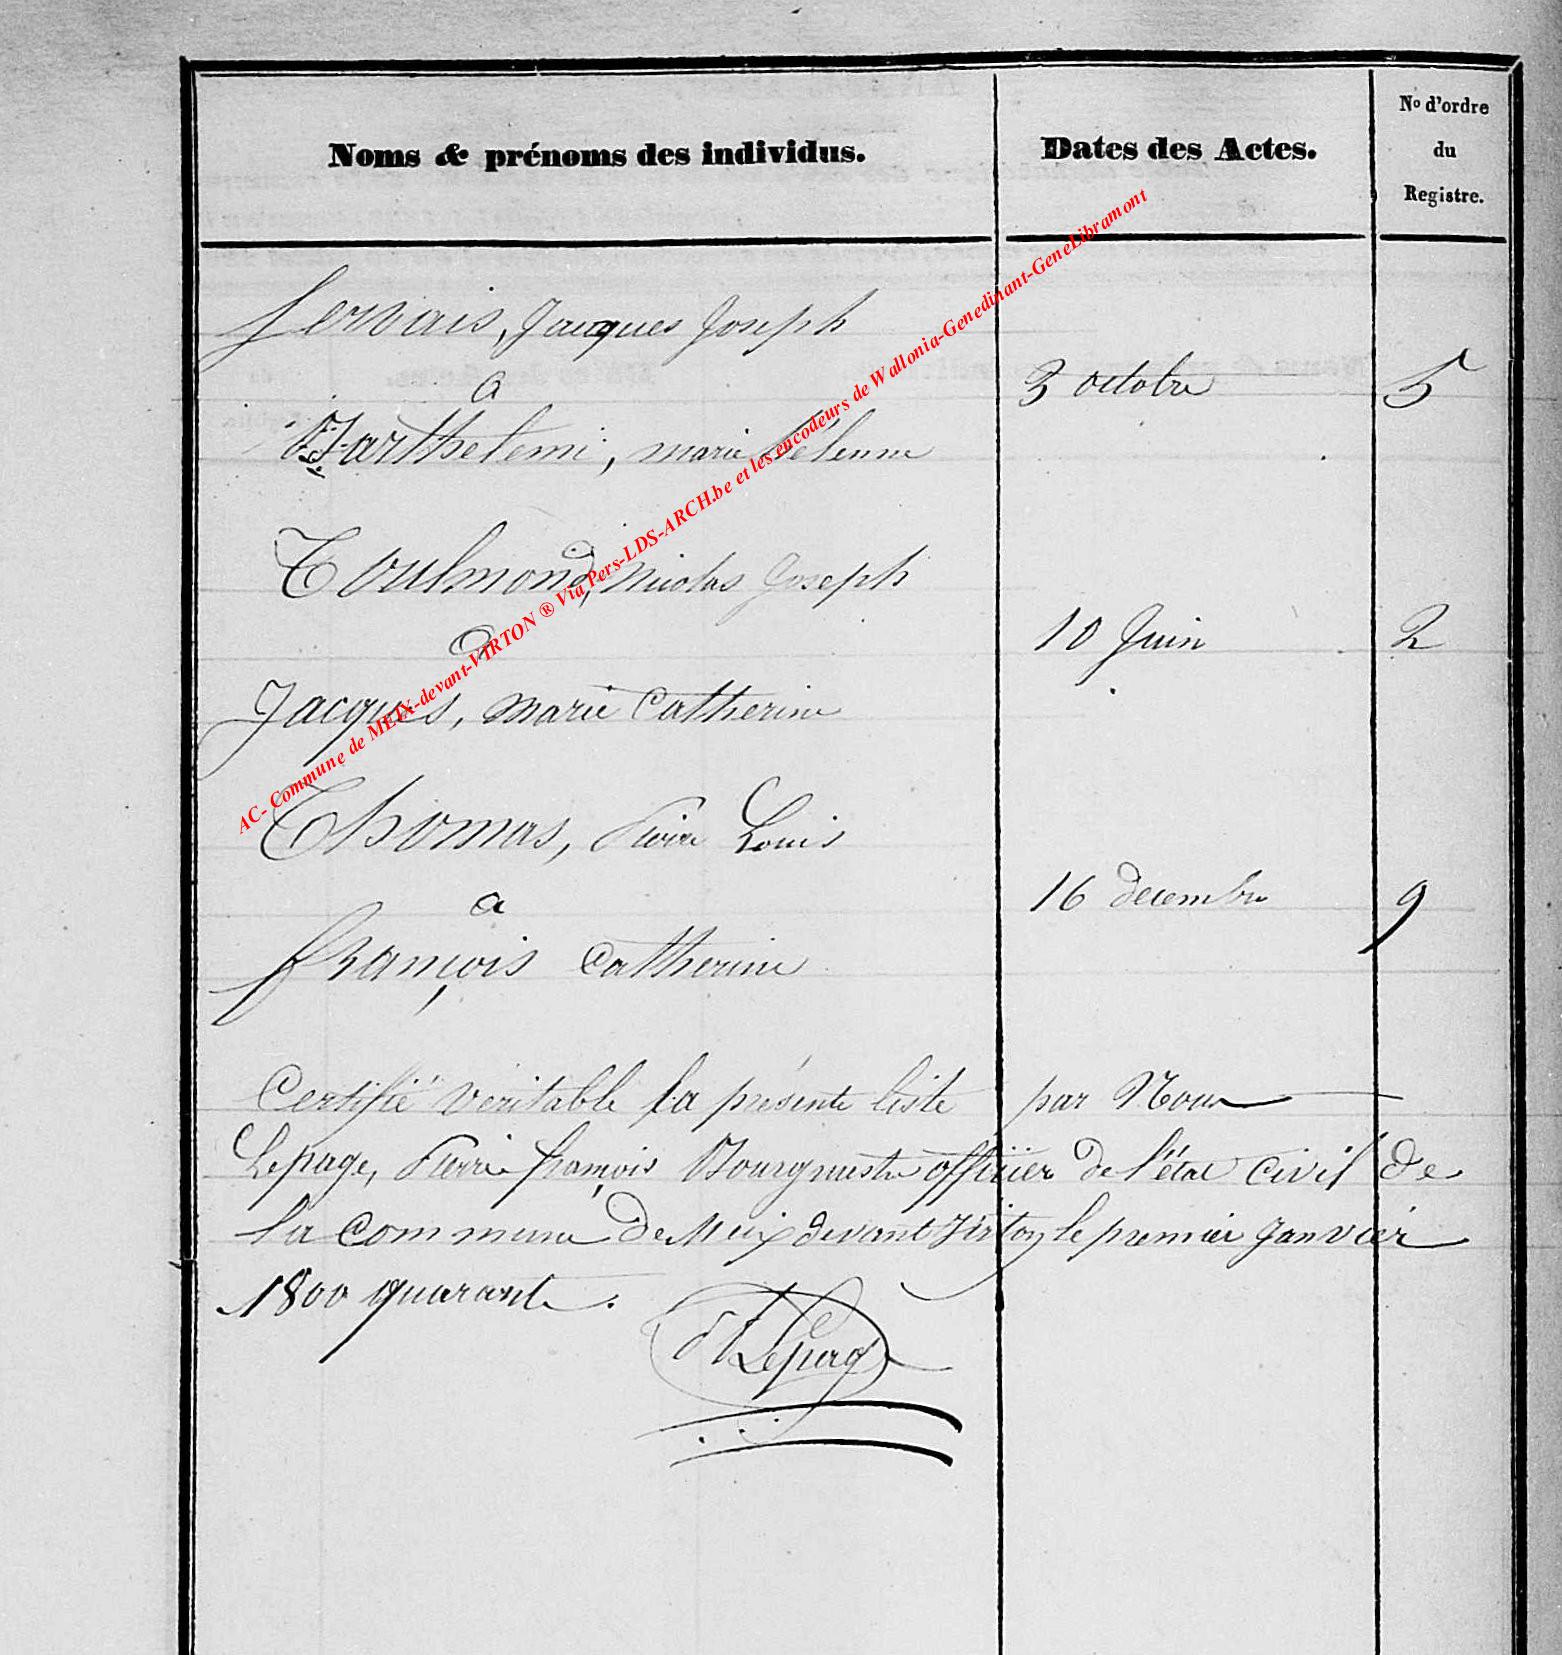 Noms & prénoms des individus.
Dates des Actes.
No d'ordre
du
Registre.
Gervais, Jacques Joseph
a
3 octobre
5
Barthelemi, marie hélenne
Toulmond, Nicolas Joseph
a
10 Juin
2
Jacques, marie Catherine
Thomas, Pierre Louis
a
16 decembre
9
françois Catherine
Certifié véritable la présente liste par Nous
Lepage, Pierre françois Bourgmestre officier de l'état civil de
la commune De Meix devant Virton le premier Janvier
1800 quarante.
Lepage
AC- Commune de MEIX-devant-VIRTON ® Via Pers-LDS-ARCH.be et les encodeurs de Wallonia-Genedinant-GeneLibramont